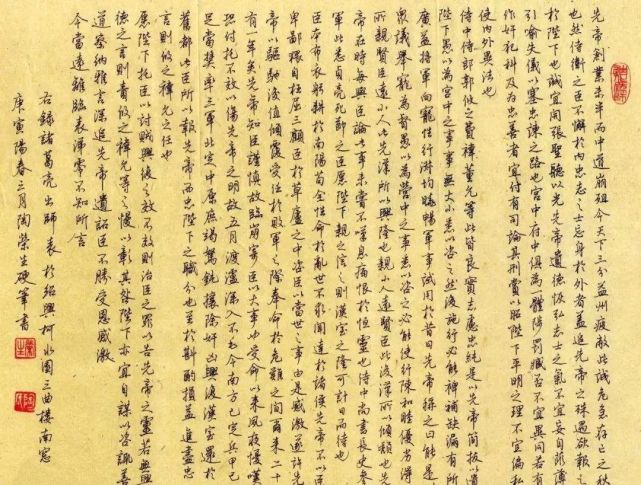 先帝創業未半而中道崩殂今天下三分益州疲敝此誠危急存亡之秋
也然侍衛之臣不懈於內忠志之士忘身於外者蓋追先帝之殊遇欲報之
於陛下也誠宜開張聖聽以光先帝遺德恢弘志士之氣不宜妄自菲薄
引喻失儀以塞忠諫之路也宮中府中俱為一體陟罰臧否不宜異同若有
作奸犯科及為忠善者宜付有司論其刑賞以昭陛下平明之理不宜偏私
使內外異法也
侍中侍郎郭攸之費禕董允等此皆良實志慮忠純是以先帝簡拔以遺
陛下愚以為宮中之事事無大小悉以咨之然後施行必能裨補缺漏有所
廣益將軍向寵性行淑均曉暢軍事試用於昔日先帝稱之曰能是
眾議舉寵為督愚以為營中之事悉以咨之必能使行陳和睦優劣得
所親賢臣遠小人此先漢所以興隆也親小人遠賢臣此後漢所以傾頹也先
帝在時每與臣論此事未嘗不嘆息痛恨於桓靈也侍中尚書長史參
軍此悉貞亮死節之臣願陛下親之信之則漢室之隆可計日而待也
臣本布衣躬耕於南陽苟全性命於亂世不求聞達於諸侯先帝不以臣
卑鄙猥自枉屈三顧臣於草廬之中咨臣以當世之事由是感激遂許先
帝以驅馳後值傾覆受任於敗軍之際奉命於危難之間爾來二十
有一年矣先帝知臣謹慎故臨崩寄臣以大事也受命以來夙夜憂嘆
恐付托不效以傷先帝之明故五月渡瀘深入不毛今南方已定兵甲已
足當獎率三軍北定中原庶竭駑鈍攘除奸凶興復漢室還於
舊都此臣所以報先帝而忠陛下之職分也至於斟酌損益進盡忠
言則攸之禕允之任也
願陛下托臣以討賊興復之效不效則治臣之罪以告先帝之靈若無興
德之言則責攸之禕允等之慢以彰其咎陛下亦宜自謀以咨諏善
道察納雅言深追先帝遺詔臣不勝受恩感激
今當遠離臨表涕零不知所言
右錄諸葛亮出師表於紹興柯水園三曲樓南窗
庚寅陽春三月陶榮生硬筆書